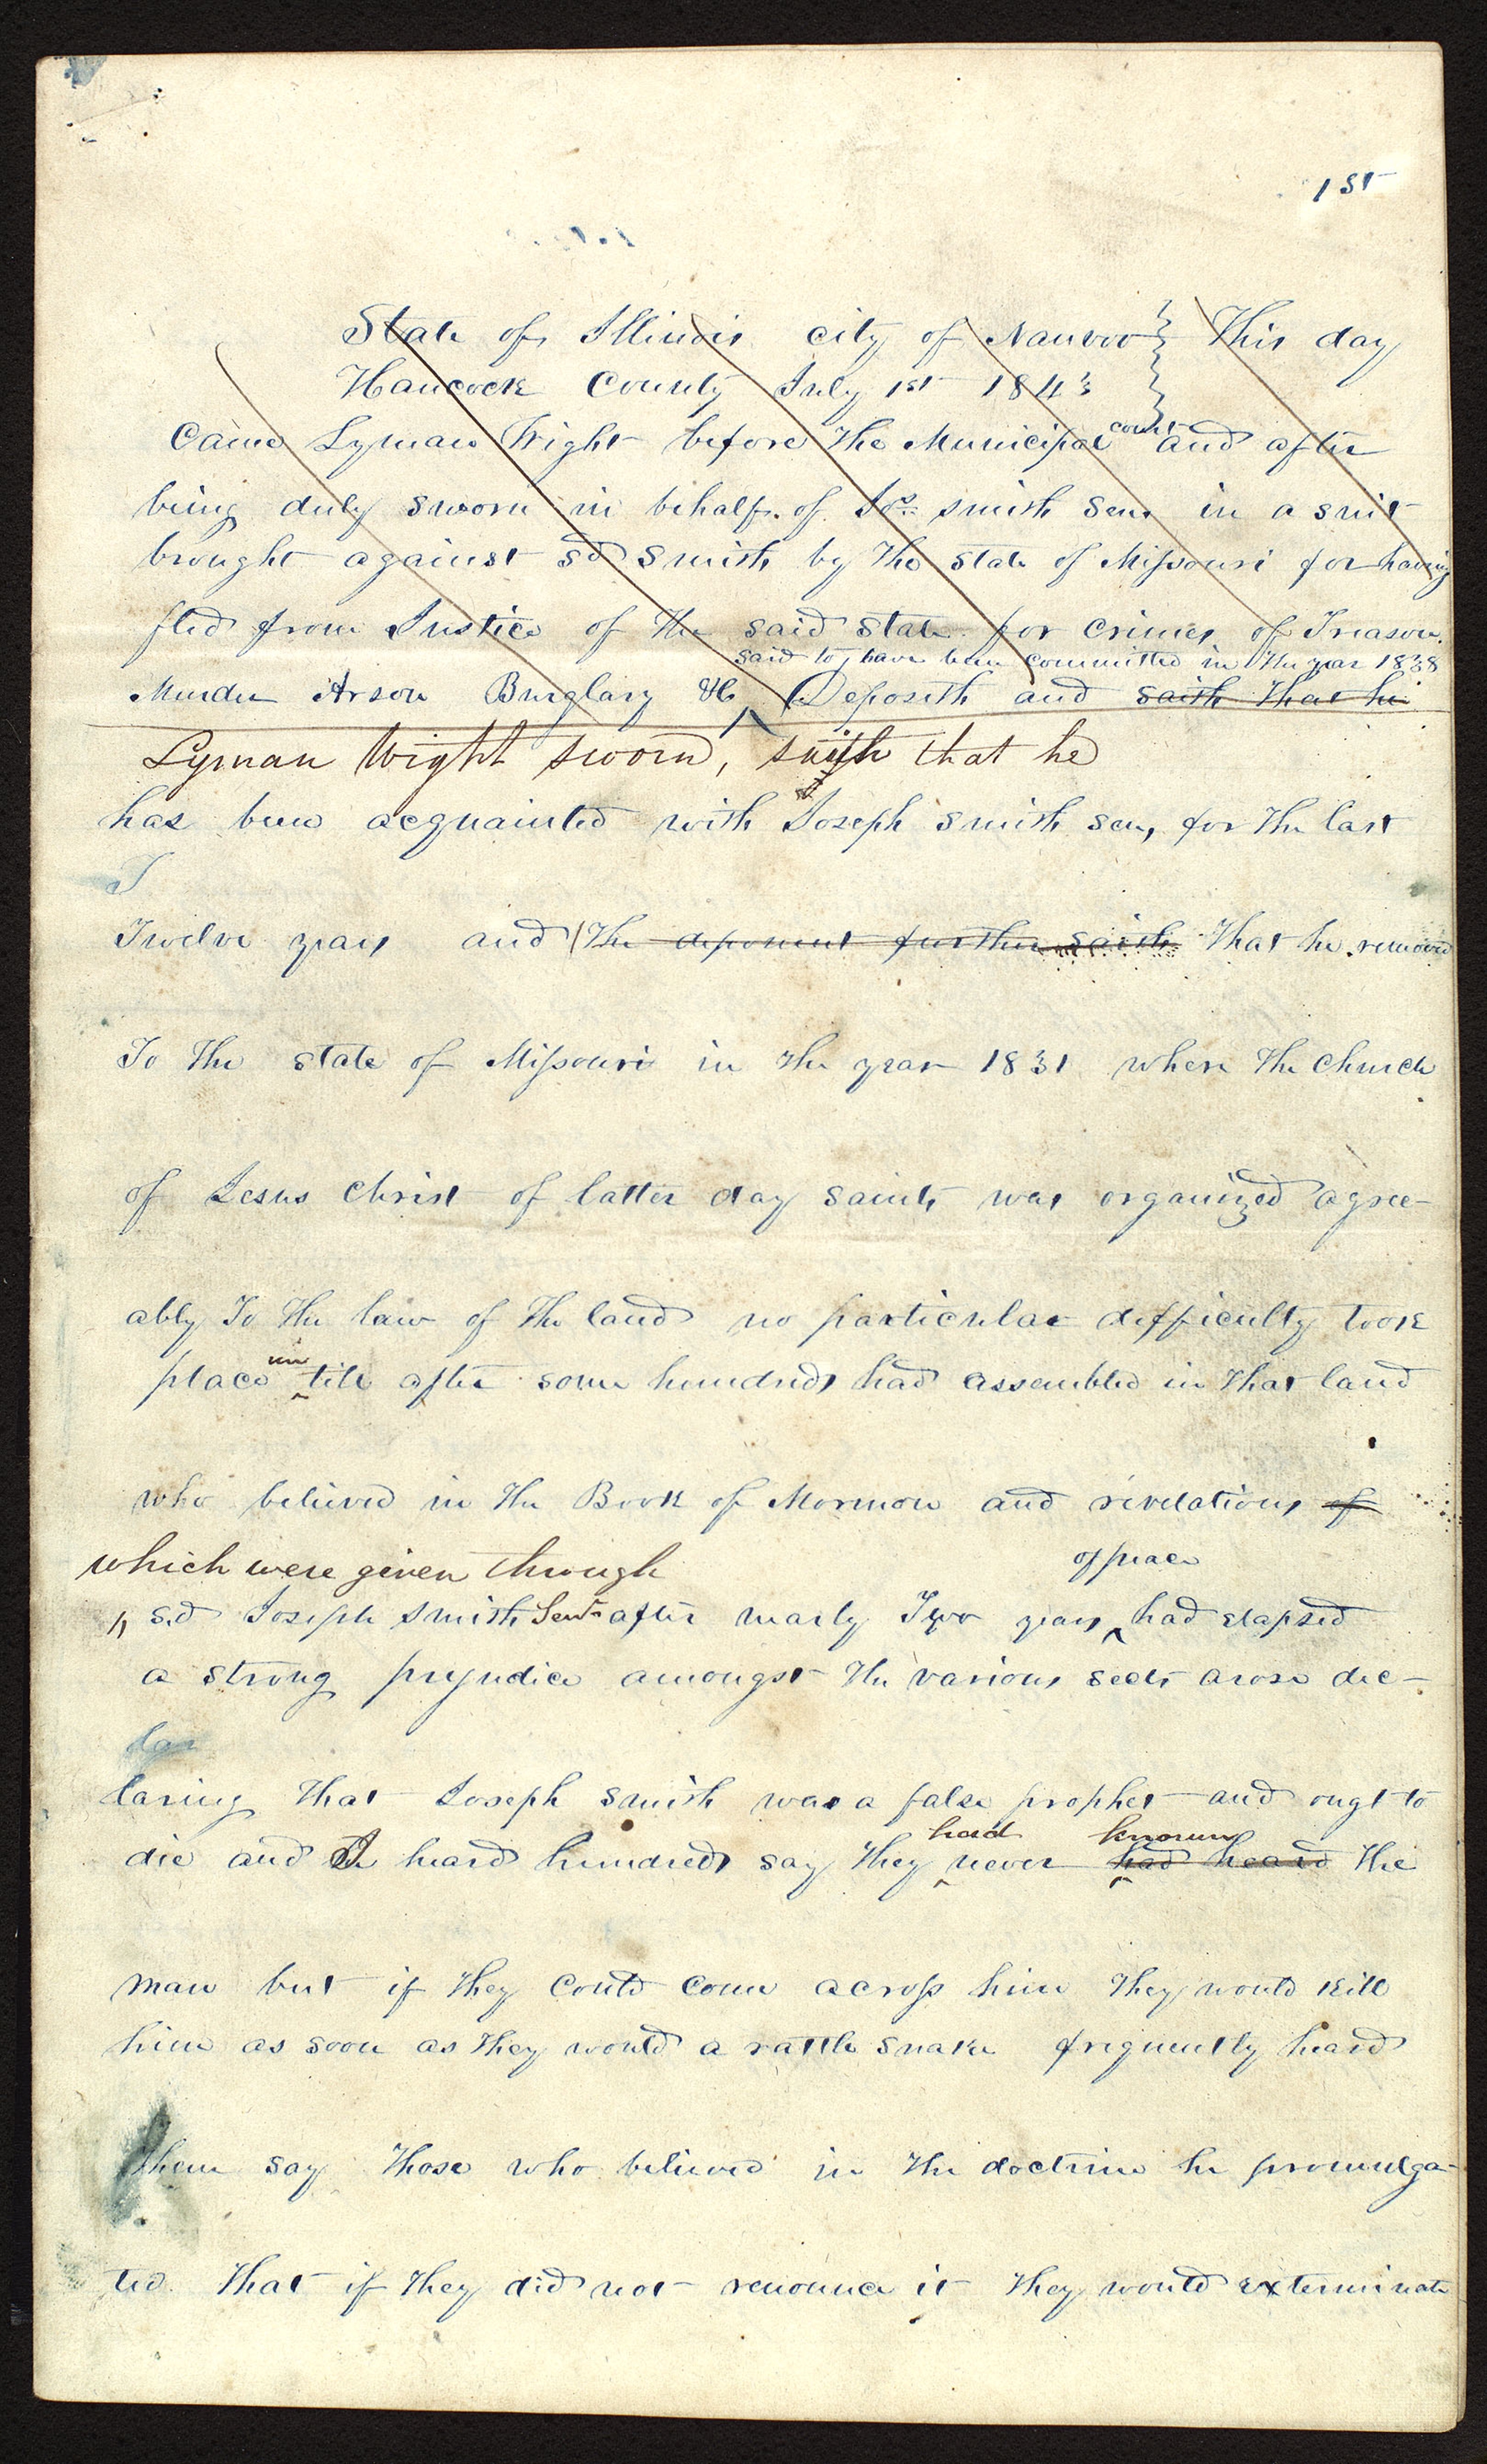 1st
State of Illinois city of Nauvoo } This day
Hancock County July 1st 1843 }
Came Lyman Wight before the Municipal court and after
being duly sworn in behalf of Jos. smith Sen. in a suit
brought against sd Smith by the state of Missouri for having
fled from Justice of the said state for crimes of Treason.
said to have been committed in the year 1838
Murder Arson Burglary &c Deposeth and saith that he
Lyman Wight sworn, saith that he
has been acquainted with Joseph smith sen, for the last
T
Twelve years and the deponent further saith That he removed
To the state of Missouri in the year 1831 where the church
of Jesus christ of latter day saints was organized agree-
ably To the law of the land no particular difficulty took
place until after some hundreds had assembled in that land
who believed in the Book of Mormon and revelations of
which were given through
of peace
sd Joseph Smith Senr after nearly Two years had elapsed
a strong prejudice amongst the various sects arose dec-
lar
laring that Joseph smith was a false prophet and ougt to
had known
die and I heard hundreds say they never had heard the
man but if they could come across him they would kill
him as soon as they would a rattle snake frequently heard
them say those who believed in the doctrine he promulga-
ted. that if they did not renounce it they would exterminate